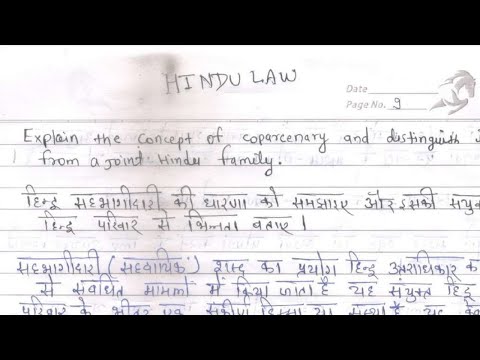 HINDU LAW
Date
Page No. 9
Explain the concept of coparcenary and distinguish
from a joint Hindu family.
हिन्दू सहभागीदारी की धारणा को समझाइए और इसकी संयु
हिन्दू परिवार से भिन्नता बताए।
सहभागीदारी ( सहदायिक) शब्द का प्रयोग हिन्दू उत्तराधिकार क
से संबंधित मामलों में किया जाता है यह संयुक्त हिंदू
परिवार के भीतर एक संकीर्ण हिस्सा या संस्था है यह